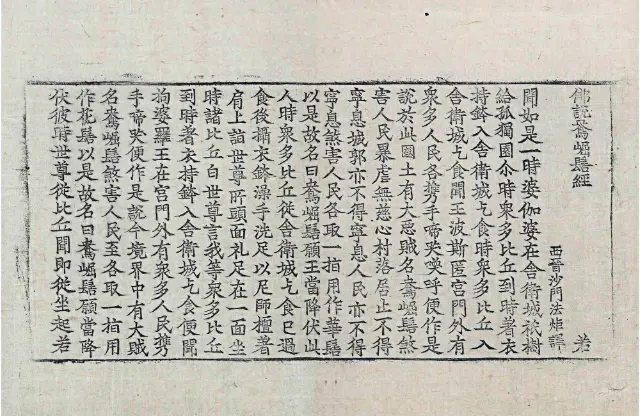 佛説鴦崛髻經
西晉沙門法炬譯 若
聞如是一時婆伽婆在舍衛城祇樹
給孤獨園尒時衆多比丘到時著衣
持鉢入舍衛城乞食時衆多比丘入
舍衛城乞食聞王波斯匿宮門外有
衆多人民各携手啼哭喚呼便作是
説於此國土有大惡賊名鴦崛髻煞
害人民暴虐無慈心村落居止不得
寧息城郭亦不得寧息人民亦不得
寧息煞害人民各取一指用作華鬘
以是故名曰鴦崛髻願王當降伏此
人時衆多比丘從舍衛城乞食已過
食後攝衣鉢澡手洗足以尼師檀著
肩上詣世尊所頭面礼足在一面坐
時諸比丘白世尊言我等衆多比丘
到時著衣持鉢入舍衛城乞食便聞
拘娑羅王在宮門外有衆多人民携
手啼哭便作是説今境界中有大賊
名鴦崛髻煞害人民至各取一指用
作花鬘以是故名曰鴦崛髻願當降
伏彼時世尊從比丘聞即從坐起若